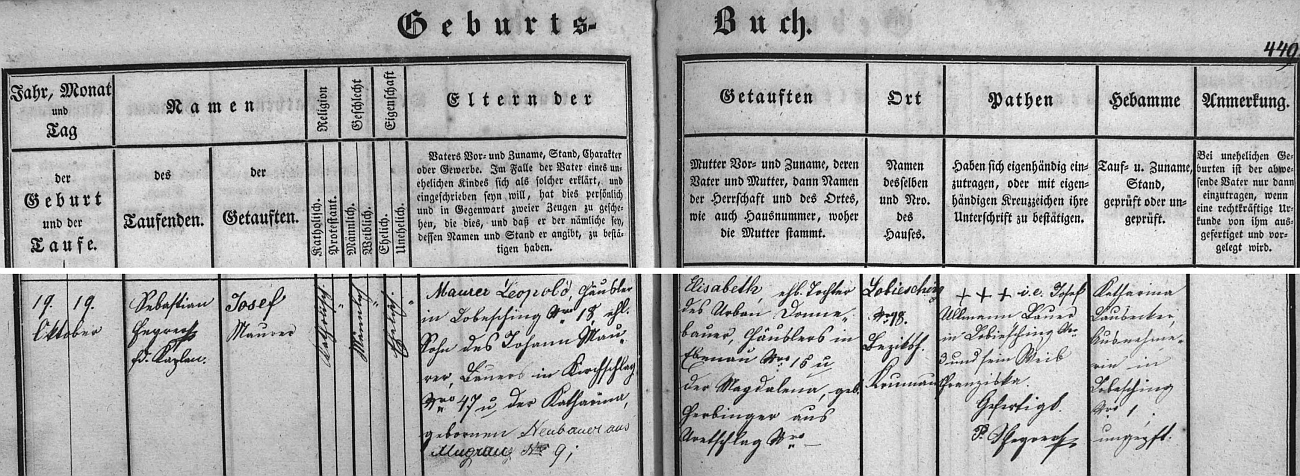 Geburts-
Buch.
449
Jahr, Monat
und
Tag
Namen
Religion
Geschlecht
Eigenschaft
Eltern der
der
Geburt
und der
Taufe.
des
Taufenden.
der
Getauften.
Katholisch.
Protestant.
Männlich.
Weiblich.
Ehelich.
Unehelich.
Vaters Vor- und Zuname, Stand, Charakter
oder Gewerbe. Im Falle der Vater eines un-
ehelichen Kindes sich als solcher erklärt, und
eingeschrieben seyn will, hat dies persönlich
und in Gegenwart zweier Zeugen zu gesche-
hen, die dies, und daß er der nämliche sey,
dessen Namen und Stand er angibt, zu bestä-
tigen haben.
Getauften
Ort
Pathen
Hebamme
Anmerkung.
Mutter Vor- und Zuname, deren
Vater und Mutter, dann Namen
der Herrschaft und des Ortes,
wie auch Hausnummer, woher
die Mutter stammt.
Namen
desselben
und Nro.
des
Hauses.
Haben sich eigenhändig ein-
zutragen, oder mit eigen-
händigen Kreuzzeichen ihre
Unterschrift zu bestätigen.
Tauf- u. Zuname,
Stand,
geprüft oder un-
geprüft.
Bei unehelichen Ge-
burten ist der abwe-
sende Vater nur dann
einzutragen, wenn
eine rechtkräftige Ur-
kunde von ihm aus-
gefertiget und vor-
gelegt wird.
19. 19.
Oktober
Sebastian
Kaplan.
Josef
Maurer
Katholisch
Männlich
Ehelich
Maurer Leopold, Häusler
in Lobesching Nro 18 ehl.
Sohn des Johann Mau-
rer, Bauers in Kirchschlag
Nro 47 u. der Katharina,
gebornen Neubauer aus
Mugrau Nro 9;
Elisabeth, ehl. Tochter
des Urban Donne-
bauer, Häuslers in
Ebenau Nro 16 u
der Magdalena, geb.
Herbinger aus
Nro
Lobiesching
Nro 18.
Bezirksh.
Krumau
+ + + i.e. Josef
Ullmann Bauer
in Lobiesching Nro
3 und sein Weib
Franziska.
Gefertigt.
P.
Katharina
in
Lobesching
Nro 1.
ungeprft.